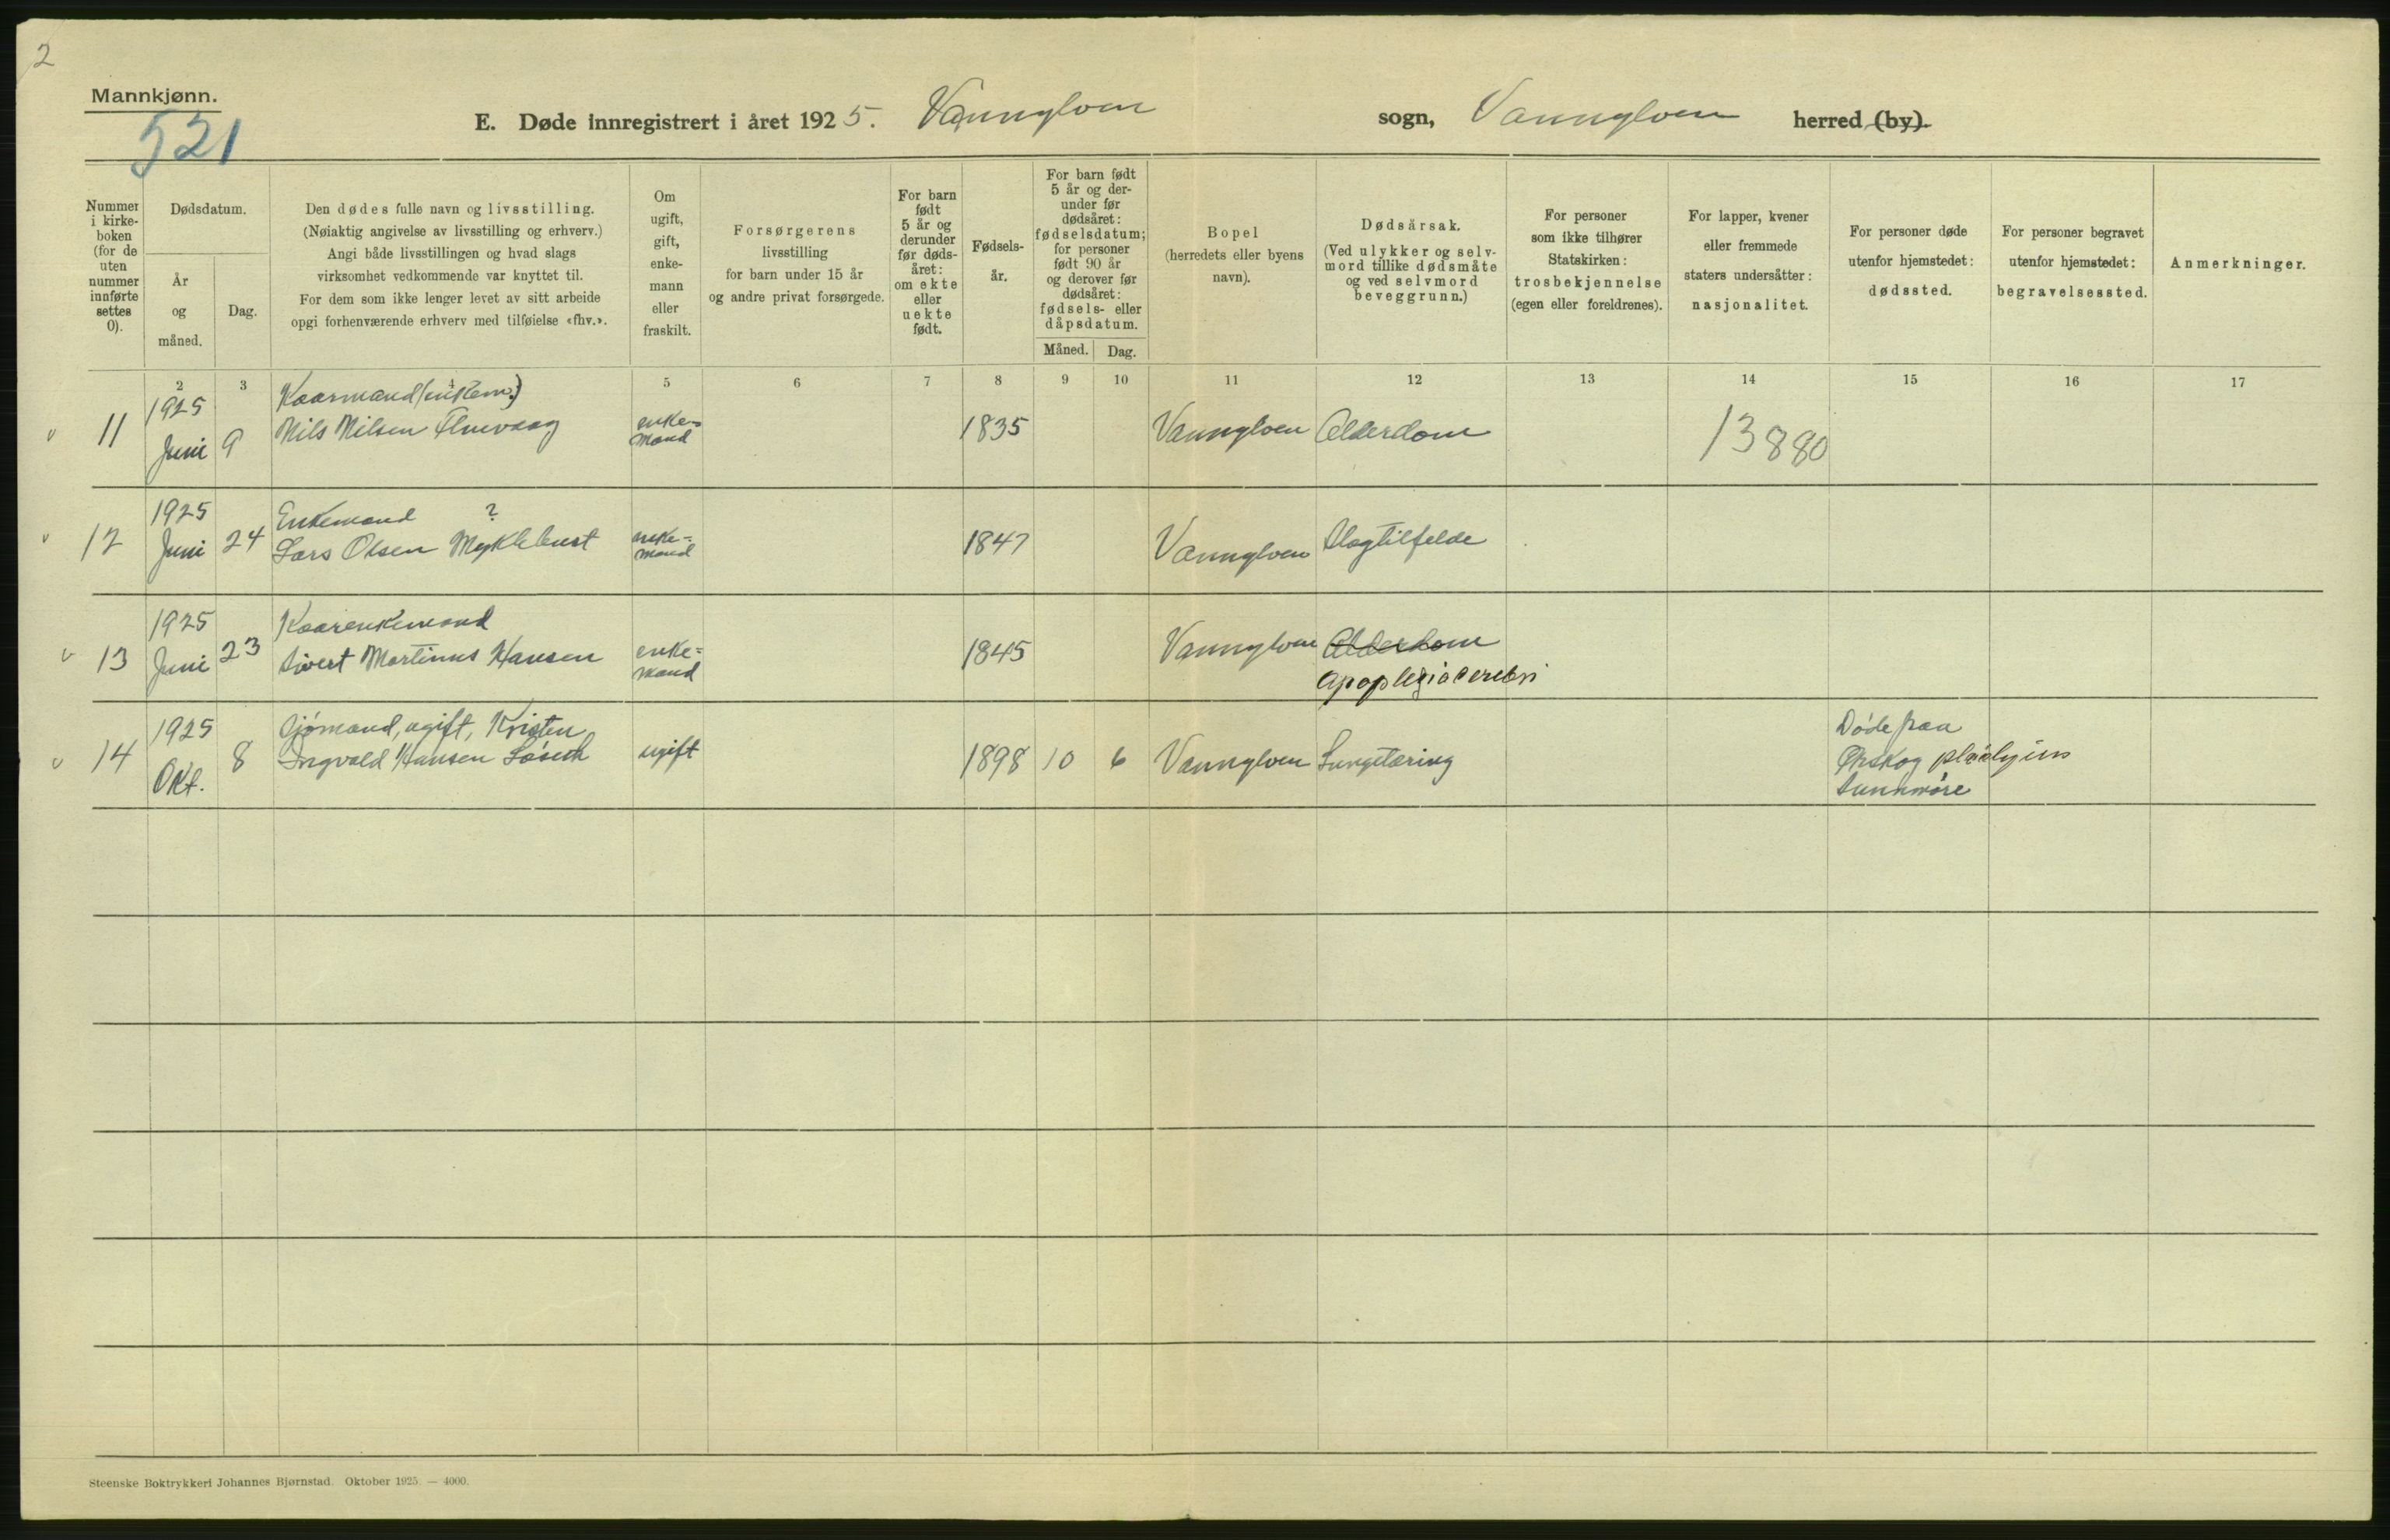 2
Mannkjønn.
521
E. Døde innregistrert i året 1925. Vannylven sogn, Vannylven herred (by).
Nummer i kirke-boken (for de uten nummer innførte settes 0).
Dødsdatum.
År og måned.
Dag.
Den dødes fulle navn og livsstilling.
(Nøiaktig angivelse av livsstilling og erhverv.)
Angi både livsstillingen og hvad slags
virksomhet vedkommende var knyttet til.
For dem som ikke lenger levet av sitt arbeide
opgi forhenværende erhverv med tilføielse «fhv.».
Om ugift, gift, enke-mann eller fraskilt.
Forsørgerens
livsstilling
for barn under 15 år
og andre privat forsørgede.
For barn født 5 år og derunder før døds-året: om ekte eller uekte født.
Fødsels-år.
For barn født 5 år og der-under før dødsåret: fødselsdatum; for personer født 90 år og derover før dødsåret: fødsels- eller dåpsdatum.
Måned. Dag.
Bopel
(herredets eller byens
navn).
Dødsårsak.
(Ved ulykker og selv-
mord tillike dødsmåte
og ved selvmord
beveggrunn.)
For personer
som ikke tilhører
Statskirken:
trosbekjennelse
(egen eller foreldrenes).
For lapper, kvener
eller fremmede
staters undersåtter:
nasjonalitet.
For personer døde
utenfor hjemstedet:
dødssted.
For personer begravet
utenfor hjemstedet:
begravelsessted.
Anmerkninger.
2 3 4 5 6 7 8 9 10 11 12 13 14 15 16 17
v 11 1925 Juni 9 Kaarmand (enkem.)
Nils Nilsen enke-mand 1835 Vannylven Alderdom 13880
v 12 1925 Juni 24 Enkemand ?
Lars Olsen Myklebust enke-mand 1847 Vannylven Slagtilfelde
v 13 1925 Juni 23 Kaarenkemand
Sivert Martinus Hansen enke-mand 1845 Vannylven Alderdom
Apoplexia cerebri
v 14 1925 Okt. 8 Sjømand, ugift, Kristen
Ingvald Hansen Løseth ugift 1898 10 6 Vannylven Lungetæring
Døde paa
Ørskog pleiehjem
Sunnmøre
Steenske Boktrykkeri Johannes Bjørnstad. Oktober 1925. — 4000.